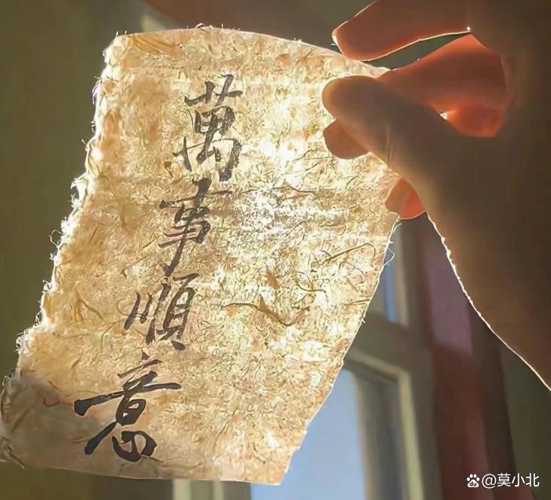 萬事順意
莫小北